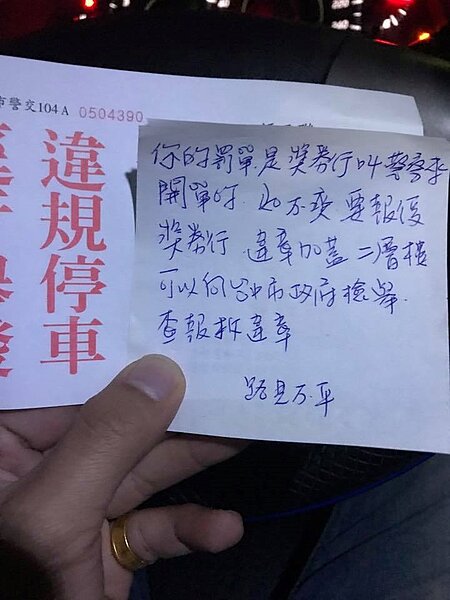 市警交104A 0504390
違規停車
你的罰單是獎券行叫警察來
開單的. 如不爽 要報復
獎券行 違章加蓋 二層樓
可以向台中市政府檢舉.
查報拆違章
路見不平